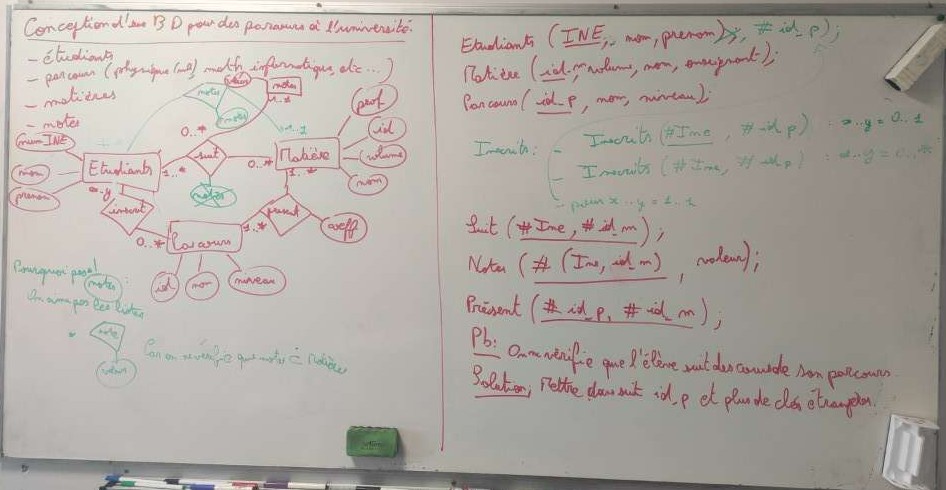 Conception d'une BD pour des parcours à l'université.
- étudiants
- parcours (physique, math, informatique, etc...)
- matières
- notes
num INE
nom
prenom
Etudiants
0..*
suit
1..*
0..*
notes
Matière
1..*
prof
id
volume
nom
x..y
inscrit
0..*
Parcours
1..*
present
coeff
id
nom
niveau
Pourquoi pas
notes
On aime pas les listes
note
valeur
Car on vérifie que notes à Matière
Etudiants (INE, nom, prenom, # id_p);
Matière (id_m, volume, nom, enseignant);
Parcours (id_p, nom, niveau);
Inscrits: - Inscrits (#Ine, #id_p) : x..y = 0..1
- Inscrits (#Ine, #id_p) : x..y = 0..*
- pour x..y = 1..1
Suit (#Ine, #id_m);
Notes (# (Ine, id_m), valeur);
Présent (# id_p, # id_m);
Pb: On vérifie que l'élève suit des cours de son parcours.
Solution, Mettre dans suit id_p et plus de clés étrangères.